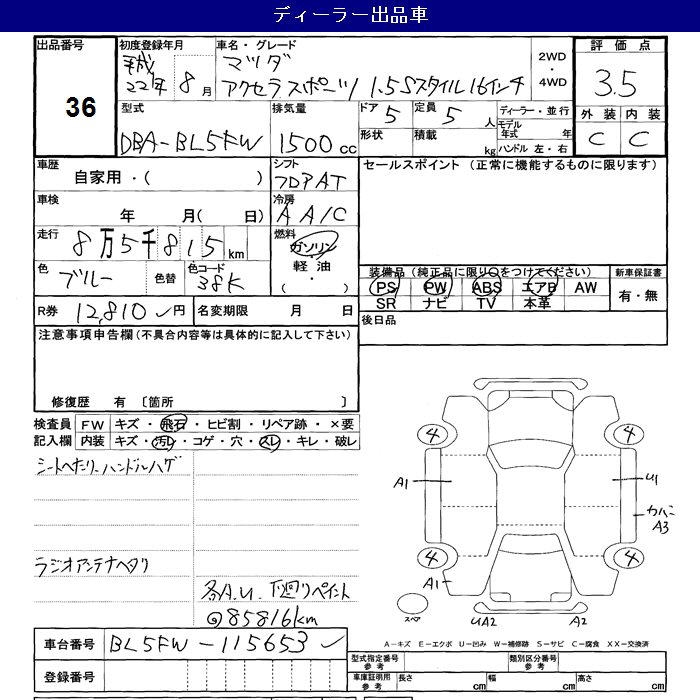 ディーラー出品車
出品番号
36
初度登録年月
平成
22年 8月
車名・グレード
マツダ
アクセラスポーツ 1.5Sスタイル16インチ
2WD
・
4WD
評価点
3.5
外装 内装
C C
型式
DBA-BL5FW
排気量
1500cc
ドア 5
定員 5人
形状
積載 kg
ディーラー・並行
モデル年式 年
ハンドル 左・右
車歴
自家用・( )
シフト
フロアAT
セールスポイント (正常に機能するものに限ります)
車検
年 月( 日)
冷房
AA/C
走行
8万5千815km
燃料
ガソリン
・
軽油
・
( )
色
ブルー
色替
色コード
38K
装備品(純正品に限り○をつけてください)
PS PW ABS エアB AW
SR ナビ TV 本革
新車保証書
有・無
R券 12,810円
名変期限 月 日
後日品
注意事項申告欄(不具合内容等は具体的に記入して下さい)
修復歴 有 〔箇所 〕
検査員
記入欄
FW キズ・飛石・ヒビ割・リペア跡・×要
内装 キズ・汚レ・コゲ・穴・スレ・キレ・破レ
シートヘタリーハンドルハゲ
ラジオアンテナヘタリ
各A.U. 下廻リペイント
@85816km
4 4
A1 U1
カバー
A3
4 4
A1
スペア
UA2 A2
A-キズ E-エクボ U-凹み W-補修跡 S-サビ C-腐食 XX-交換済
車台番号 BL5FW-115653
登録番号
型式指定番号
参考
類別区分番号
参考
車庫証明用
参考
長さ cm 幅 cm 高さ cm